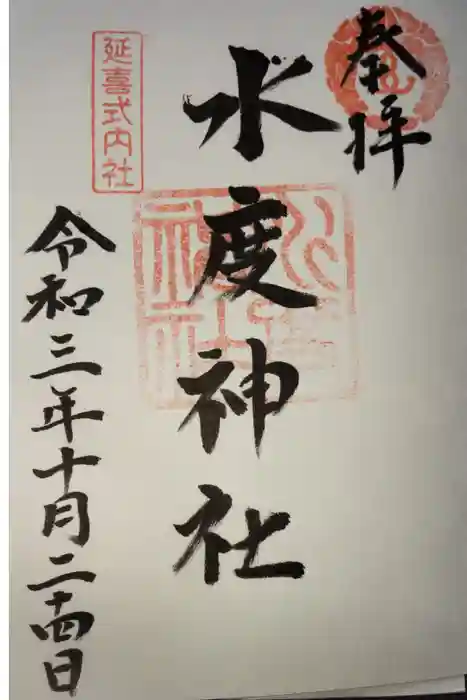 奉拝
水度神社
延喜式内社
令和三年十月二十四日